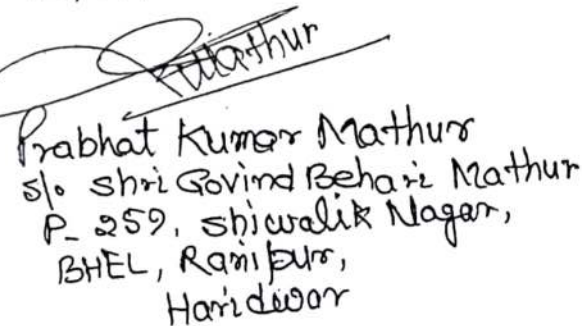 PMathur
Prabhat Kumar Mathur
S/o Shri Govind Behari Mathur
P-259, Shiwalik Nagar,
BHEL, Ranipur,
Haridwar